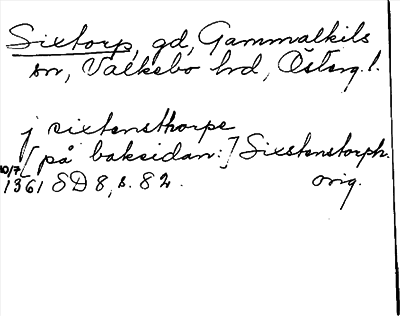 Sixtorp, gd, Gammalkils
sn, Valkebo hd, Österg. l.
j sixtensthorpe
[på baksidan:] Sixstenstorph.
10/7 1361 SD 8, s. 82. orig.